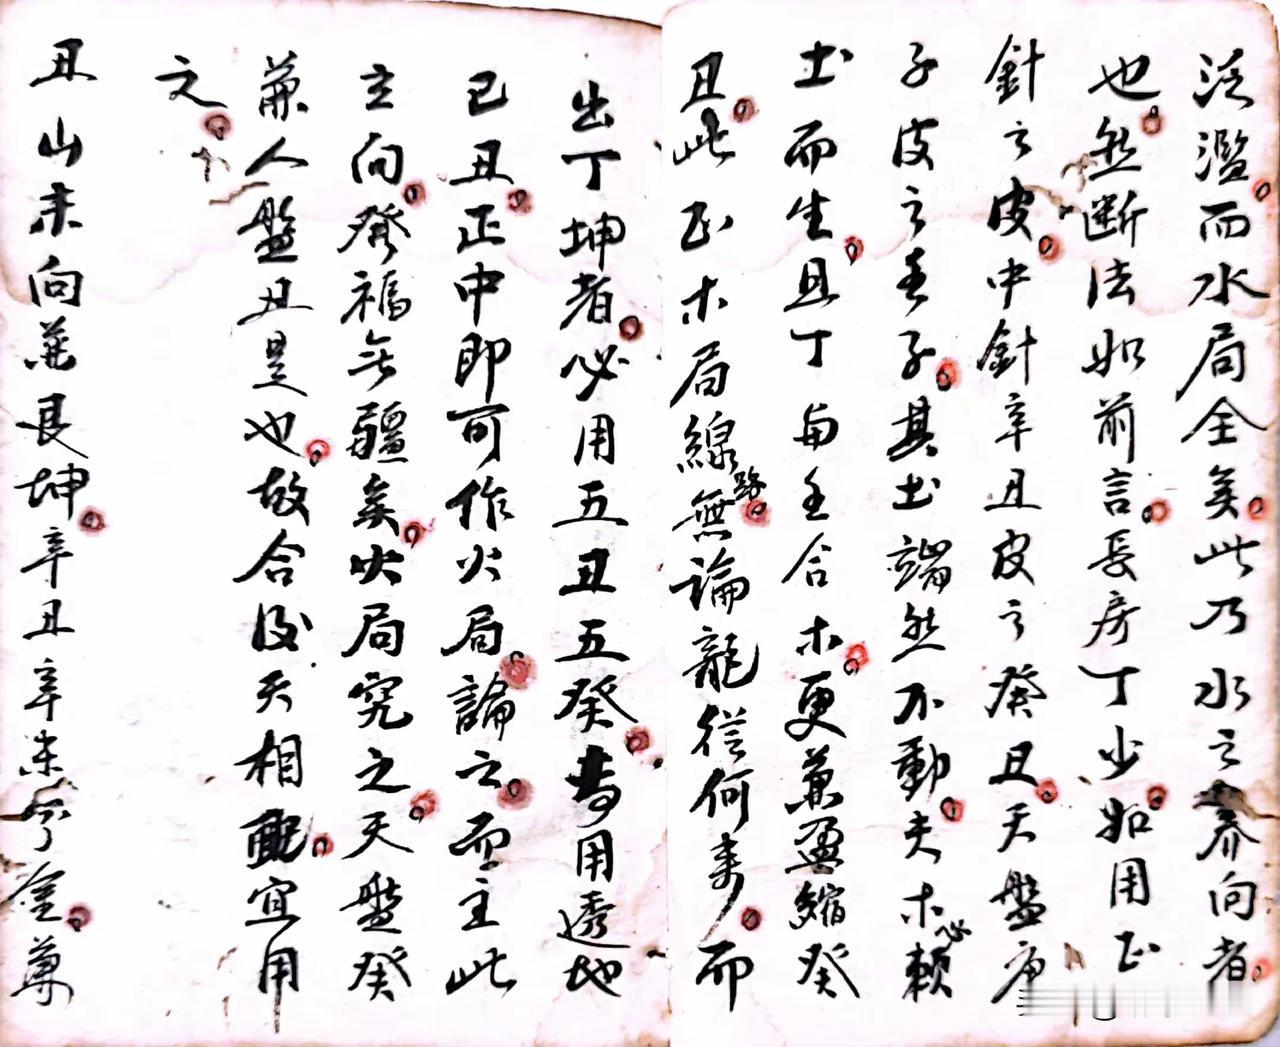 泛濫而水局全矣此乃水之养向者
也然断法如前言長房丁少如用正
針之皮中針辛丑皮之癸丑天盤庚
子皮之壬子其土端然不動夫木必賴
土而生且丁与壬合木更兼盈縮癸
丑此正木局線路無論龍從何来而
出丁坤者必用五丑五癸专用透地
己丑正中即可作火局論之而主此
立向發福无疆矣火局究之天盤癸
兼人盤丑是也故合後天相配宜用
之
丑山未向兼艮坤辛丑辛未分金兼